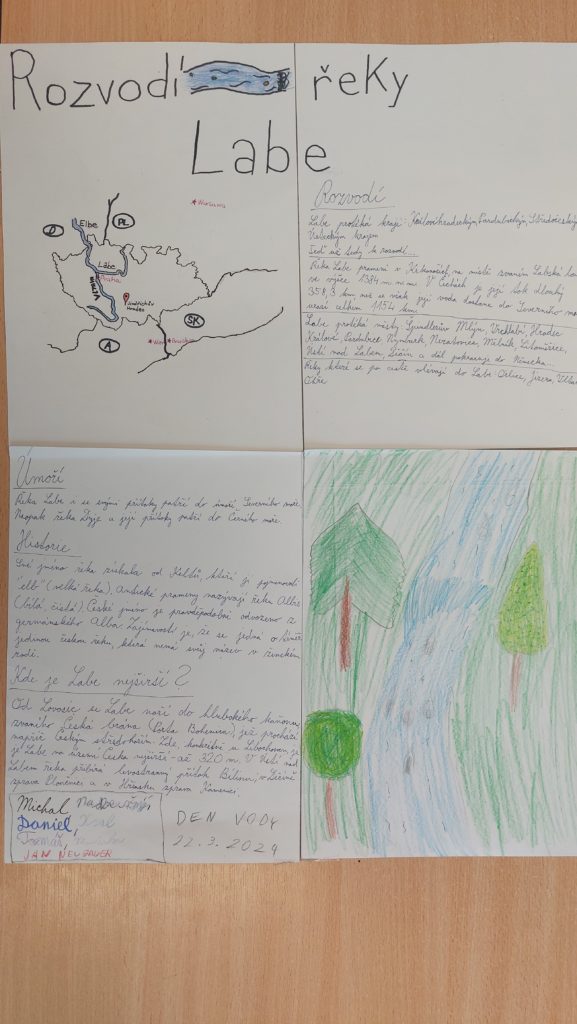 Rozvodí řeky
Labe
Warszawa
Elbe
PL
D
Labe
Praha
Vltava
Jindřichův
Hradec
SK
A
Wien
Rozvodí
Labe protéká kraji: Královéhradeckým, Pardubickým, Středočeským,
Ústeckým krajem
Teď už tedy k rozvodí...
Řeka Labe pramení v Krkonoších, na místě zvaném Labská
ve výšce 1384 m n. m. V Čechách je její tok dlouhý
358,3 km, než se však její voda dostane do Severního
urazí celkem 1154 km.
Labe protéká městy: Špindlerův Mlýn, Vrchlabí, Hradec
Králové, Pardubice, Nymburk, Neratovice, Mělník, Litoměřice,
Ústí nad Labem, Děčín a dál pokračuje do Německa...
Řeky, které se po cestě vlévají do Labe: Orlice, Jizera,
Ohře
Úmoří
Řeka Labe i se svými přítoky patří do úmoří Severního moře.
Naopak řeka Dyje a její přítoky patří do Černého moře.
Historie
Své jméno řeka získala od Keltů, kteří ji pojmenovali
"elb" (velká řeka). Antické prameny nazývají řeku Albis
(bílá, čistá). České jméno je pravděpodobně odvozeno z
germánského Alba. Zajímavostí je, že se jedná o téměř
jedinou českou řeku, která nemá svůj název v ženském
rodě.
Kde je Labe nejširší?
Od Lovosic se Labe noří do hlubokého kaňonu
zvaného Česká brána (Porta Bohemica), jež prochází
napříč Českým středohořím. Zde, konkrétně u Libochovan, je
je Labe na území Česka nejširší - až 320 m. V Ústí nad
Labem řeka přibírá levostranný přítok Bílinu, v Děčíně
zprava Ploučnici a v Hřensku zprava Kamenici.
Michal
Daniel,
Tomáš,
JAN NEUBAUER
DEN VODY
22.3.2024